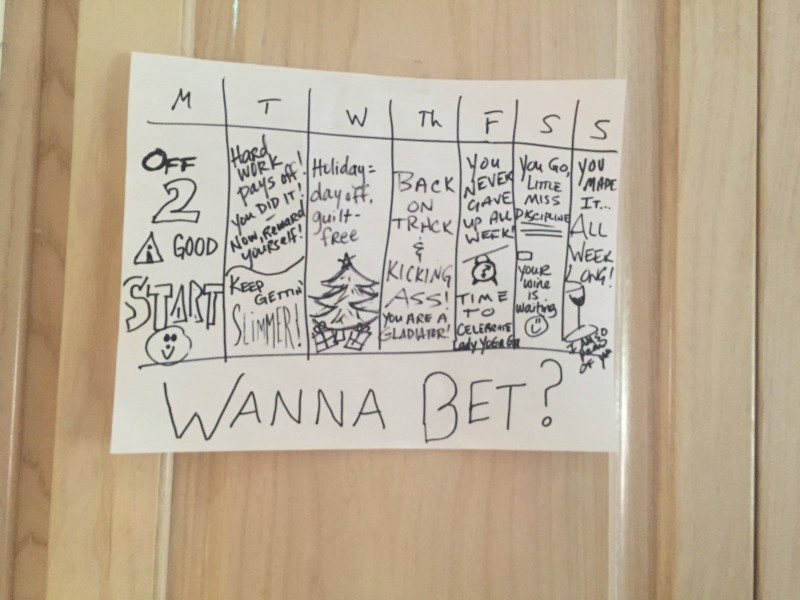 M T W Th F S S
OFF
2
A GOOD
START
HARD
WORK
pays off!
YOU DID IT!
NOW, REWARD
yourself!
KEEP
GETTIN'
SLIMMER!
Holiday =
day off,
guilt-
free
BACK
ON
TRACK
&
KICKING
ASS!
YOU ARE A
GLADIATOR!
YOU
NEVER
GAVE
UP ALL
WEEK!
TIME
TO
CELEBRATE
Lady
YOU GO,
LITTLE
MISS
DISCIPLINE
YOUR
wine
is
waiting
YOU
MADE
IT...
ALL
WEEK
LONG!
I AM SO
of you
WANNA BET?